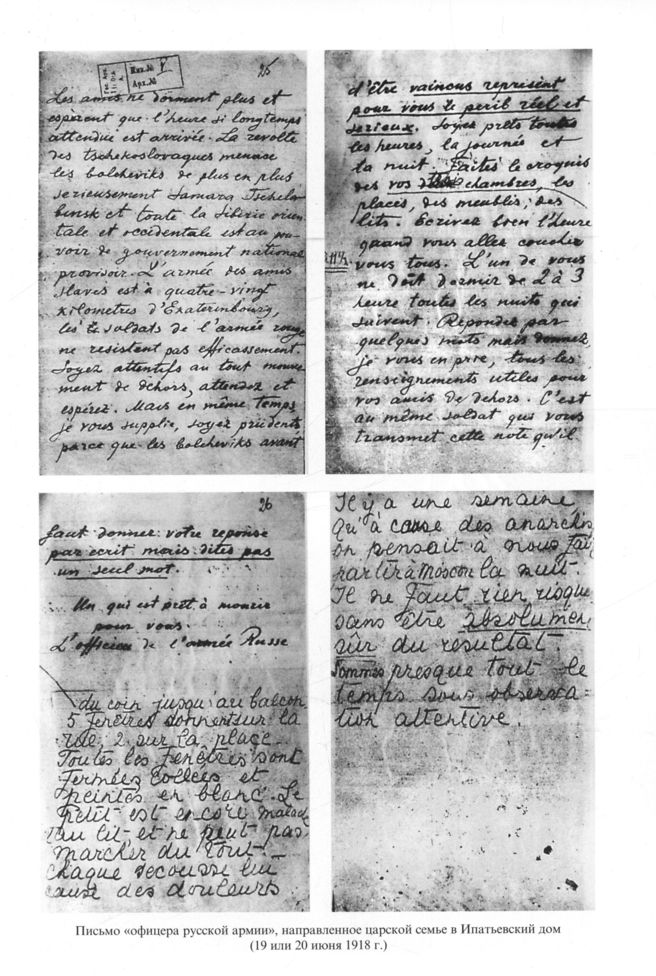 Инв.№
Арх.№
25
Les amis ne dorment plus et
espèrent que l'heure si longtemps
attendue est arrivée. La revolte
des tschekoslovaques menase
les bolcheviks de plus en plus
serieusement Samara Tschela-
binsk et toute la Sibirie orien-
tale et occidentale est au pou-
voir de gouvernement national
provisoir. L'armée des amis
slaves est à quatre-vingt
kilometres d'Ekaterinbourg,
les soldats de l'armée rouge
ne resistent pas efficassement.
Soyez attentifs au tout mouve-
ment de dehors, attendez et
esperez. Mais en même temps,
je vous supplie, soyez prudents
parce que les bolcheviks avant
d'être vaincus represent
pour vous le peril réel et
serieux. Soyez prets toutes
les heures, la journée et
la nuit. Faites le croquis
des vos chambres, les
places, des meubles, des
lits. Ecrivez bien l'heure
quand vous allez coucher
vous tous. L'un de vous
ne doit dormir de 2 à 3
heure toutes les nuits qui
suivent. Repondez par
quelques mots mais donnez,
je vous en prie, tous les
renseignements utiles pour
vos amis de dehors. C'est
au même soldat qui vous
transmet cette note qu'il
26
faut donner votre reponse
par ecrit mais dites pas
un seul mot.
Un qui est pret à mourir
pour vous.
L'officier de l'armée Russe
du coin jusqu'au balcon,
5 fenêtres donnent sur la
rue 2 sur la place.
Toutes les fenêtres sont
fermées collées et
peintes en blanc. Le
petit est encore malade
au lit et ne peut pas
marcher du tout.
Chaque secousse lui
cause des douleurs
Il y a une semaine
qu'à cause des anarchis
on pensait à nous faire
partir à Moscou la nuit.
Il ne faut rien risque
sans être absolument
sûr du resultat.
Sommes presque tout le
temps sous observa-
tion attentive.
Письмо «офицера русской армии», направленное царской семье в Ипатьевский дом
(19 или 20 июня 1918 г.)